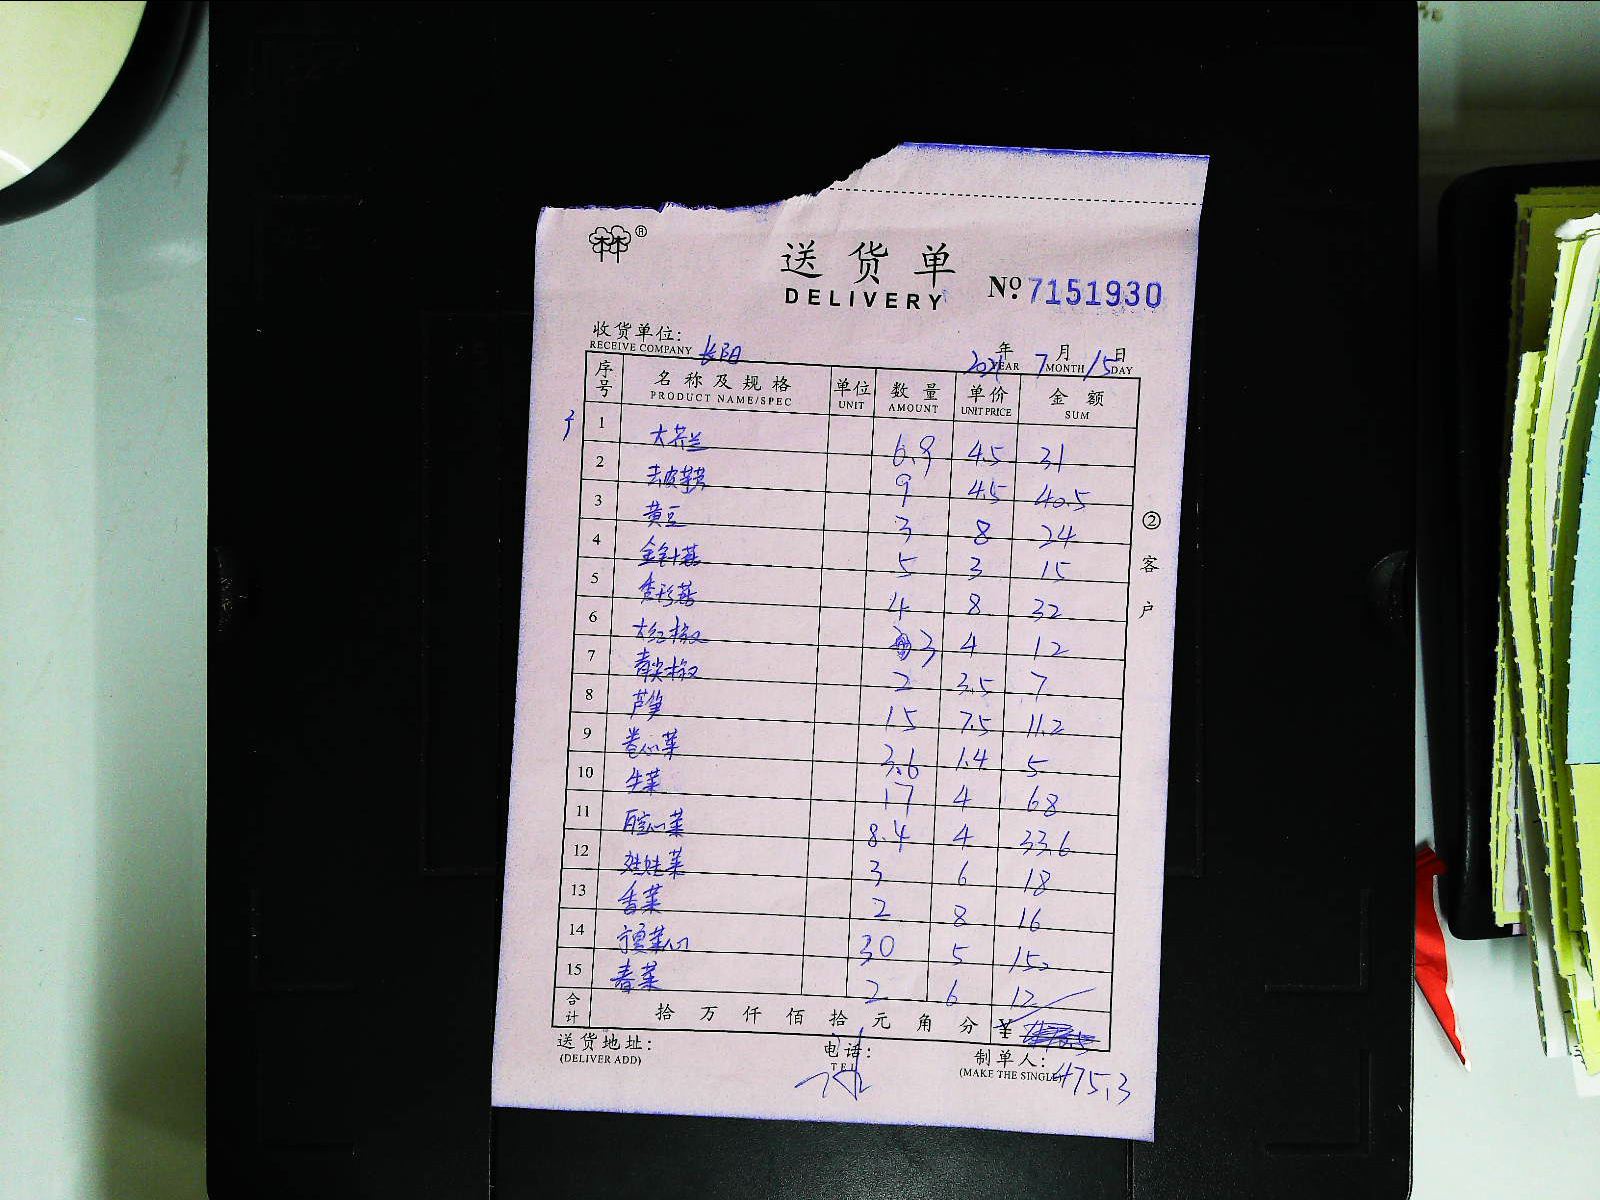 ®
送货单
DELIVERY
No. 7151930
收货单位: 长阳
RECEIVE COMPANY
2021年 7月 15日
YEAR MONTH DAY
序号 名称及规格 单位 数量 单价 金额
PRODUCT NAME/SPEC UNIT AMOUNT UNIT PRICE SUM
1 大芥兰 6.9 4.5 31
2 去皮莴 9 4.5 40.5
3 黄豆 3 8 24
4 金针菇 5 3 15
5 杏鲍菇 4 8 32
6 大红椒 3 4 12
7 青尖椒 2 3.5 7
8 芦笋 1.5 7.5 11.2
9 卷心菜 3.6 1.4 5
10 生菜 17 4 68
11 白空心菜 8.4 4 33.6
12 娃娃菜 3 6 18
13 香菜 2 8 16
14 菜心 30 5 150
15 春菜 2 6 12
合计 拾 万 仟 佰 拾 元 角 分 ¥
475.3
送货地址:
(DELIVER ADD)
电话:
TEL
制单人:
(MAKE THE SINGLE)
②客户